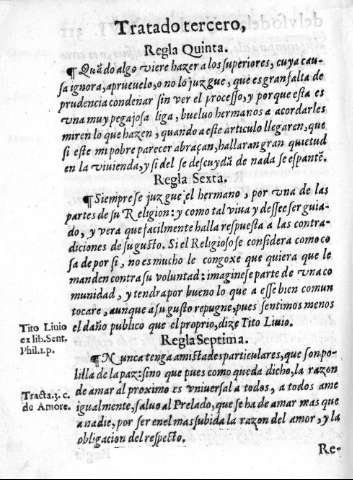 Tratado tercero,
Regla Quinta.
¶Quãdo algo viere hazer a los superiores, cuya cau-
sa ignora, apruevelo, o no lo juzgue, que es gran falta de
prudencia condenar sin ver el processo, y porque esta es
vna muy pegajosa liga, buelvo hermanos a acordarles
miren lo que hazen, quando a este articulo llegaren, que
si este mi pobre parecer abraçan, hallaran gran quietud
en la vivienda, y si del se descuydã de nada se espantẽ.
Regla Sexta.
¶Siempre se juzgue el hermano, por vna de las
partes de su Religion: y como tal viva y dessee ser guia-
do, y vera que facilmente halla respuesta a las contra-
diciones de su gusto. Si el Religioso se considera como co
sa de por si, no es mucho le congoxe que quiera que le
manden contra su voluntad: imaginese parte de vna co
munidad, y tendra por bueno lo que a esse bien comun
tocare, aunque a su gusto repugne, pues sentimos menos
el daño publico que el proprio, dize Tito Livio.
Tito Liuio
ex lib. Sent.
Phil. 1. p.
Regla Septima.
¶Nunca tenga amistades particulares, que son po-
lilla de la paz: sino que pues como queda dicho, la razon
de amar al proximo es vniversal a todos, a todos ame
igualmente, salvo al Prelado, que se ha de amar mas que
a nadie, por ser en el mas subida la razon del amor, y la
obligacion del respecto.
Tracta. 3. c.
de Amore.
Re-